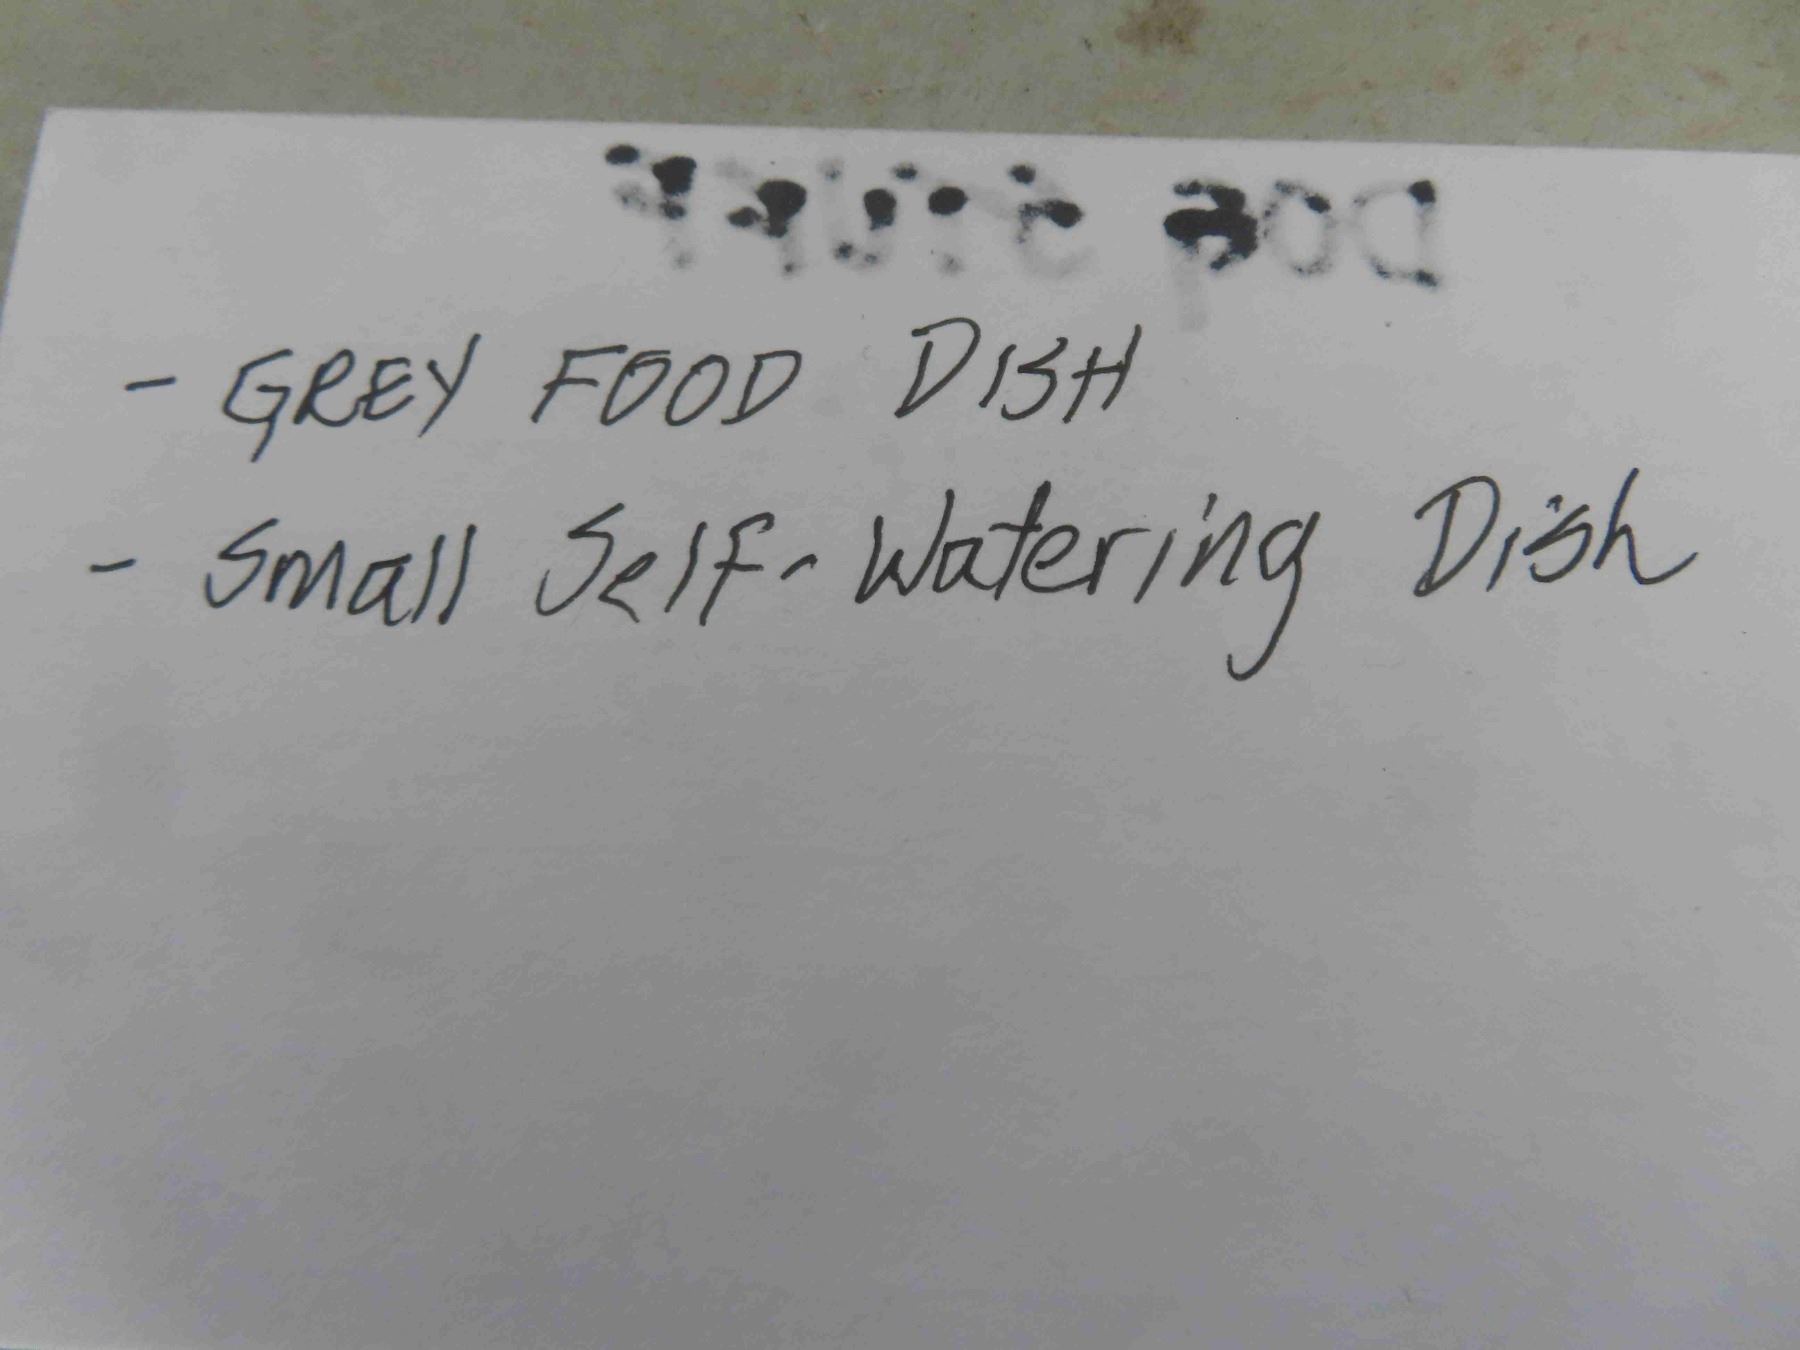 - GREY FOOD DISH
- Small Self-Watering Dish